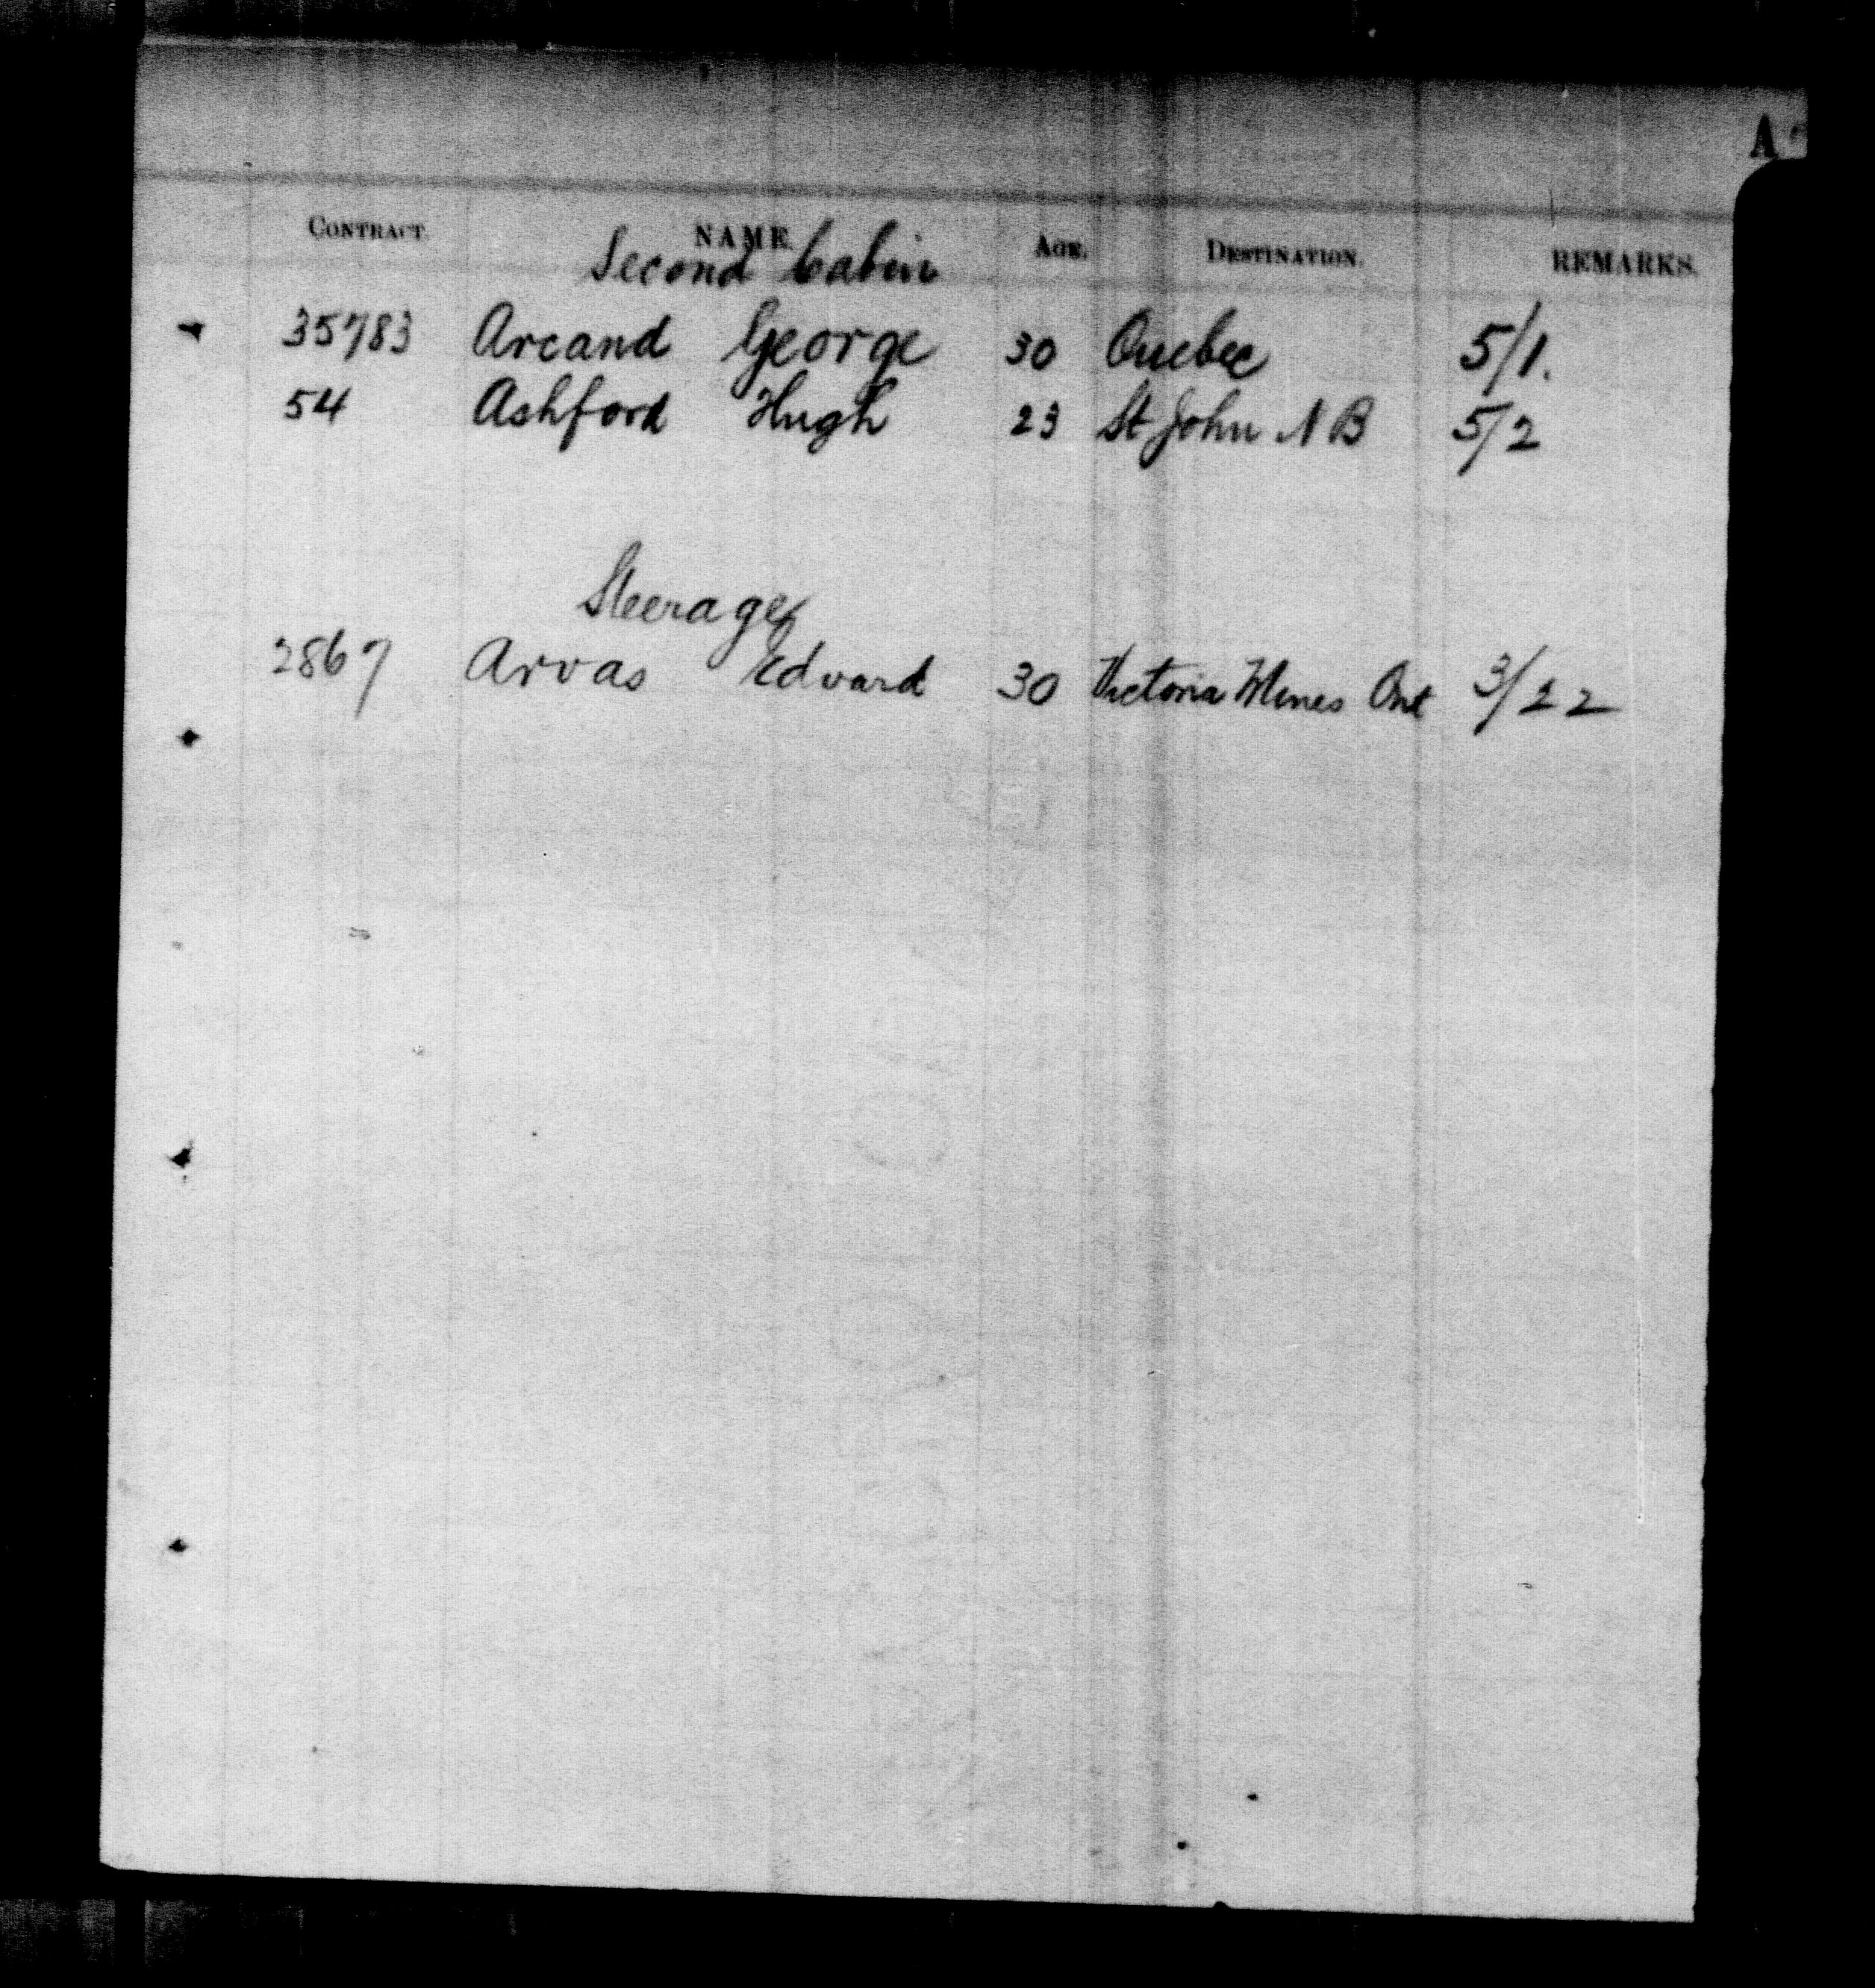 A
CONTRACT. NAME. AGE. DESTINATION. REMARKS.
Second Cabin
35783 Arcand George 30 Quebec 5/1.
54 Ashford Hugh 23 St John N B 5/2
Steerage
2867 Arvas Edvard 30 Victoria Mines Ont 3/22